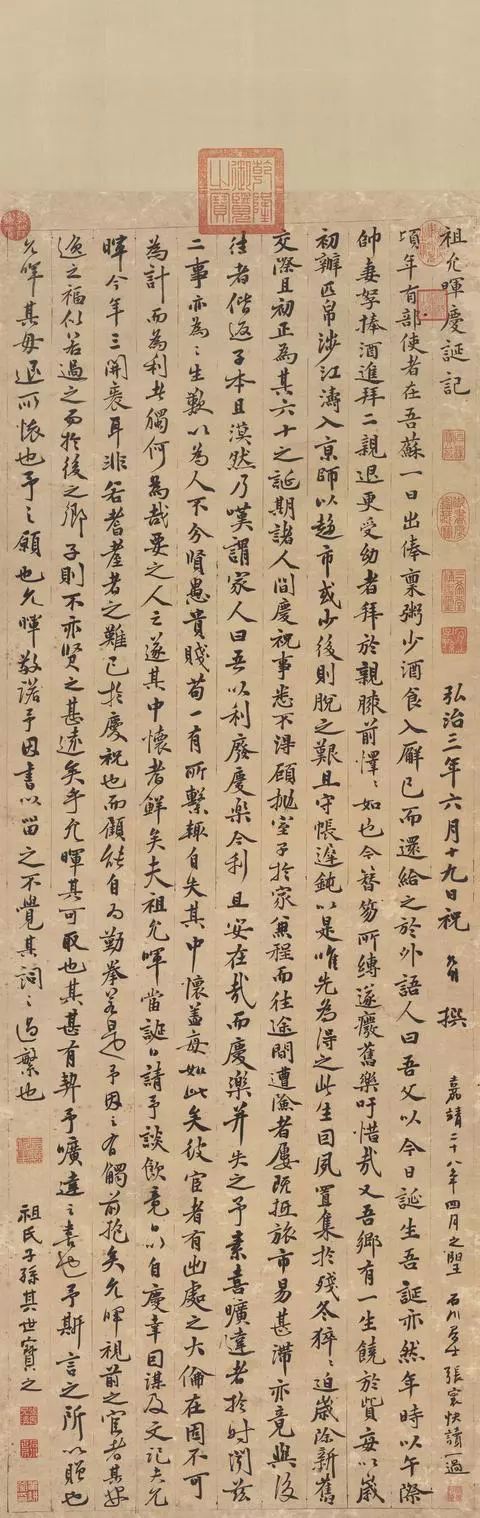 祖允暉慶誕記
弘治三年六月十九日祝 允明 撰
嘉靖二十八年四月之望 石川 張寰快讀一過
頃年有部使者在吾蘇一日出俸稟粥少酒食入廨已而還給之於外語人曰吾父以今日誕生吾誕亦然年時以午際
帥妻孥捧酒進拜二親退更受幼者拜於親膝前懌〻如也今簪笏所縛遂癈舊樂吁惜哉又吾鄉有一生饒於貲每以歲
初辦匹帛涉江濤入京師以趍市或少後則脫之艱且守帳遲鈍以是唯先為得之此生因夙置集於殘冬猝〻迫歲除新舊
交際且初正為其六十之誕期諸人間慶祝事悉不得顧拋室子於家兼程而往途間遭澮者屢既抵旅市易甚滯亦竟與後
往者偕返子本且漠然乃嘆謂家人曰吾以利廢慶樂今利且安在哉而慶樂并失之予素喜曠達者於時閱茲
二事亦為〻生數以為人不分賢愚貴賤苟一有所繫趣自失其中懷蓋每如此矣彼宦者有出處之大倫在固不可
為計而為利者獨何為哉要之人之遂其中懷者鮮矣夫祖允暉當誕日請予談飲竟日以自慶幸因謀及文記夫允
暉今年三開袠耳非若耆耋者之難已於慶祝也而顧能自為勤拳若是予因之有觸前抱矣允暉視前之宦者其
逸之福似若過之而於後之鄉子則不亦賢之甚遠矣乎允暉其可取也其甚有契予曠達之喜也予斯言之所以贈也
允暉其毋退所懷也予之願也允暉敬諾予因書以留之不覺其詞〻過繁也
祖氏子孫其世寶之
乾隆御覽之寶